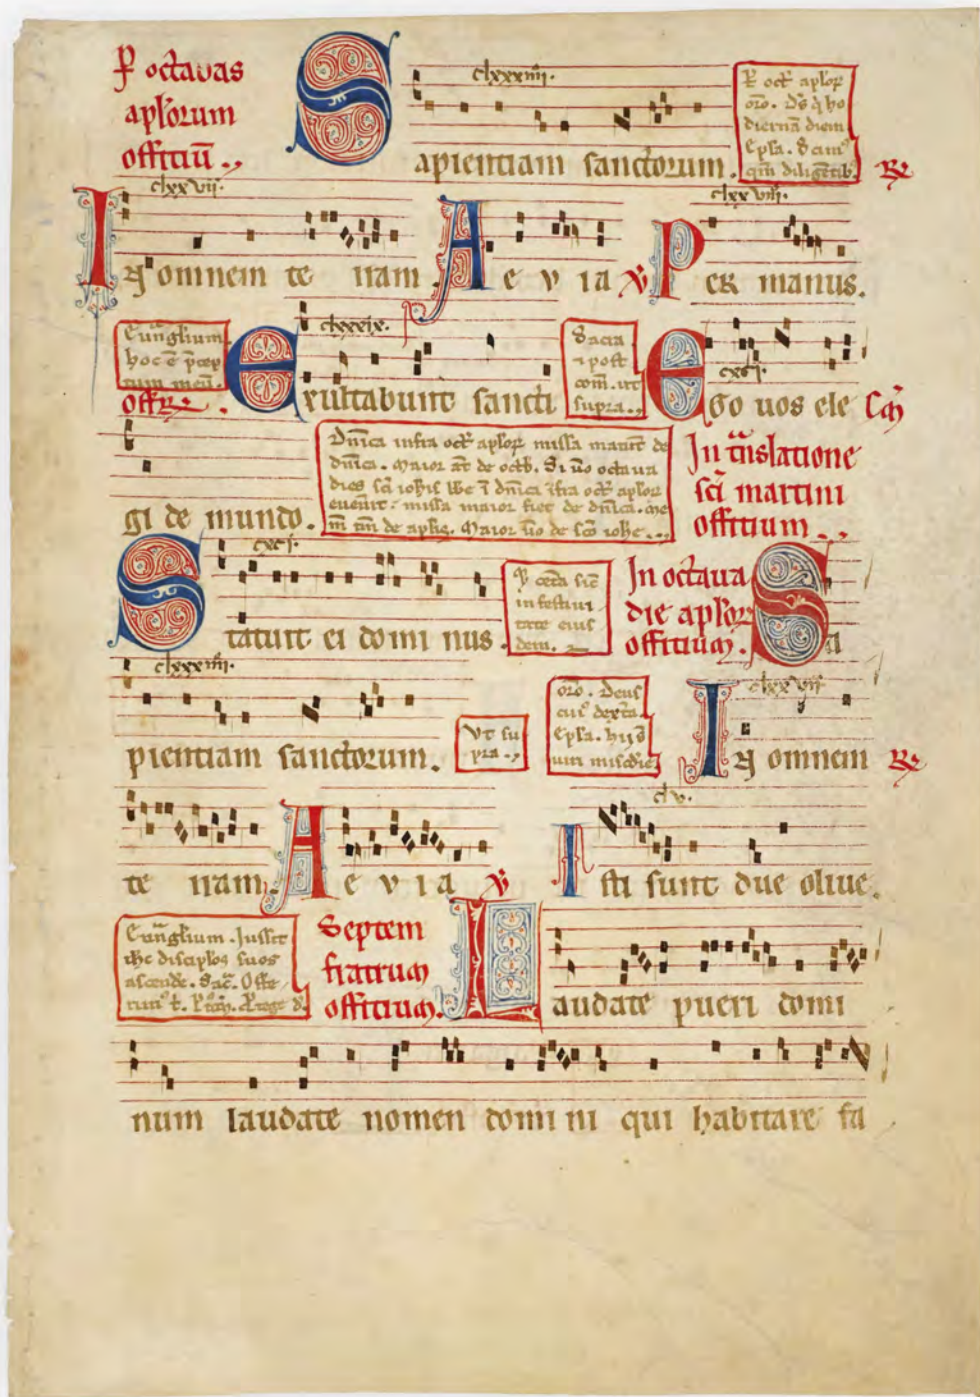 P octavas
aplorum
offitiū
clxxxiiii.
Sapientiam sanctorum.
P oct aplor
oro. Ds q ho
diernā diem
Epla. Scim
qm diligētib
R
clxxvii.
In omnem te rram. Aevia V
clxxviii.
Per manus.
Euāglium.
hoc ē p̄cep
tum meū.
Offr.
clxxxix.
Exultabunt sancti
Sacra
post
com. ut
supra.
cxci.
Ego vos ele Cō
gi de mundo.
Dnica infra oct aplor missa matut de
dnica. Maior de octb. Si vo octava
dies sci iohis infra oct aplor
evenit missa maior fiet de dnica.
de aplis. Maior vo de sco iohe.
In trāslatione
sci martini
offitium.
cxci.
Statuit ei domi nus.
cetā sic
in festivi
tate eius
dem.
In octava
die aplor
offitium.
Sa
clxxxiiii.
pientiam sanctorum.
Ut su
pra.
oro. Deus
cui dextā.
Epla. hii s
viri miscdie
clxxvii.
In omnem R
te rram. Aevia V
clv.
Isti sunt due olive.
Euāglium. Jussit
ihc disciplos suos
ascende. Sac. Offe
rim t.
Septem
fratrum
offitium.
Laudate pueri domi
num laudate nomen domi ni qui habitare fa